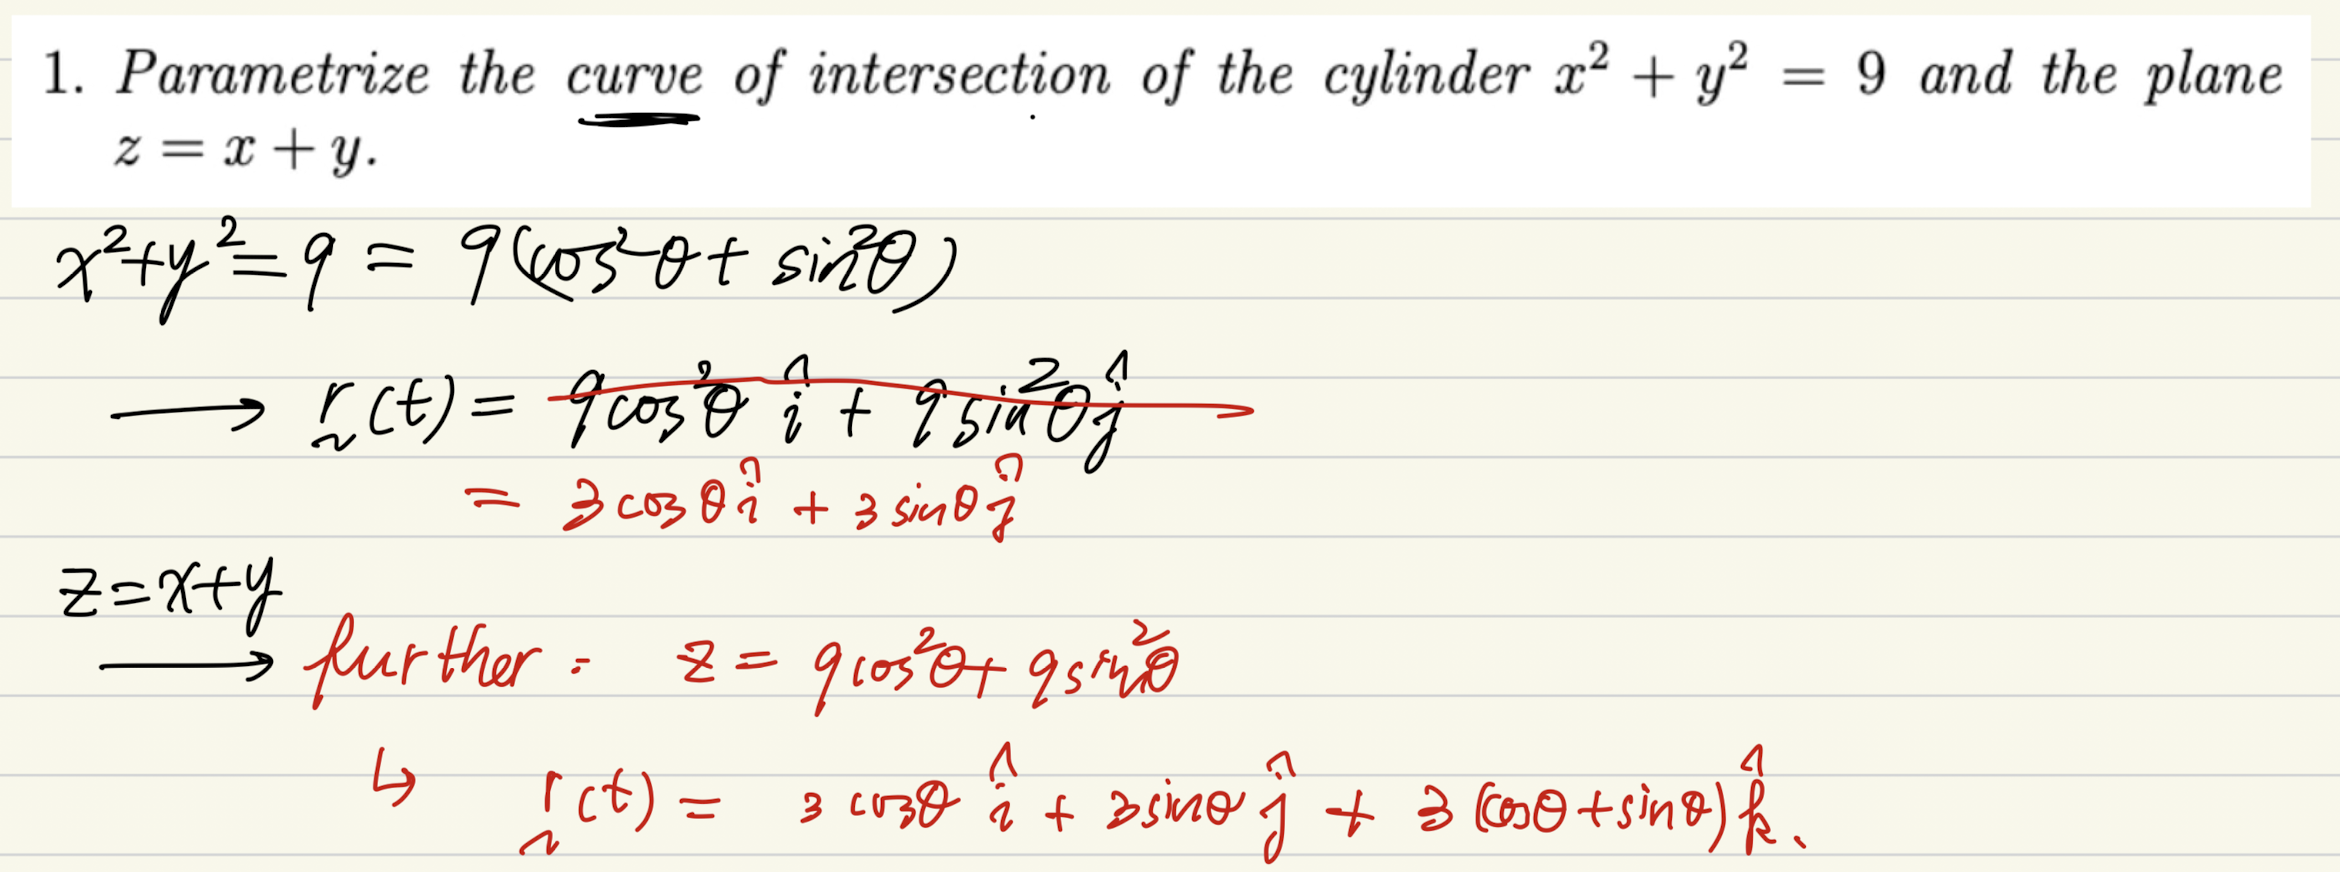 1. Parametrize the curve of intersection of the cylinder x² + y² = 9 and the plane
z = x + y.
x²+y²=9 = 9(cos²θ + sin²θ)
→ r(t) = 9cos²θ î + 9sin²θ ĵ
= 3cosθ î + 3sinθ ĵ
z=x+y
→ further : z = 9cos²θ + 9sin²θ
↳ r(t) = 3cosθ î + 3sinθ ĵ + 3(cosθ+sinθ) k̂.